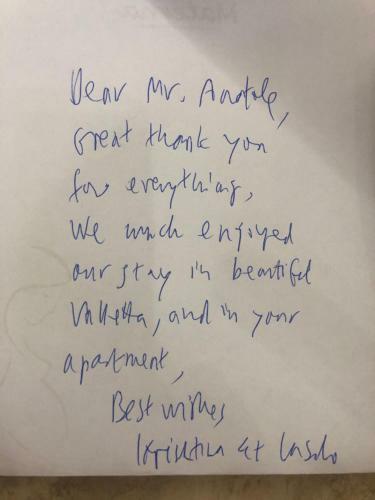 Dear Mr. Anatole,
Great thank you
for everything,
We much enjoyed
our stay in beautiful
Valletta, and in your
apartment,
Best wishes
Krisztina et Laszlo